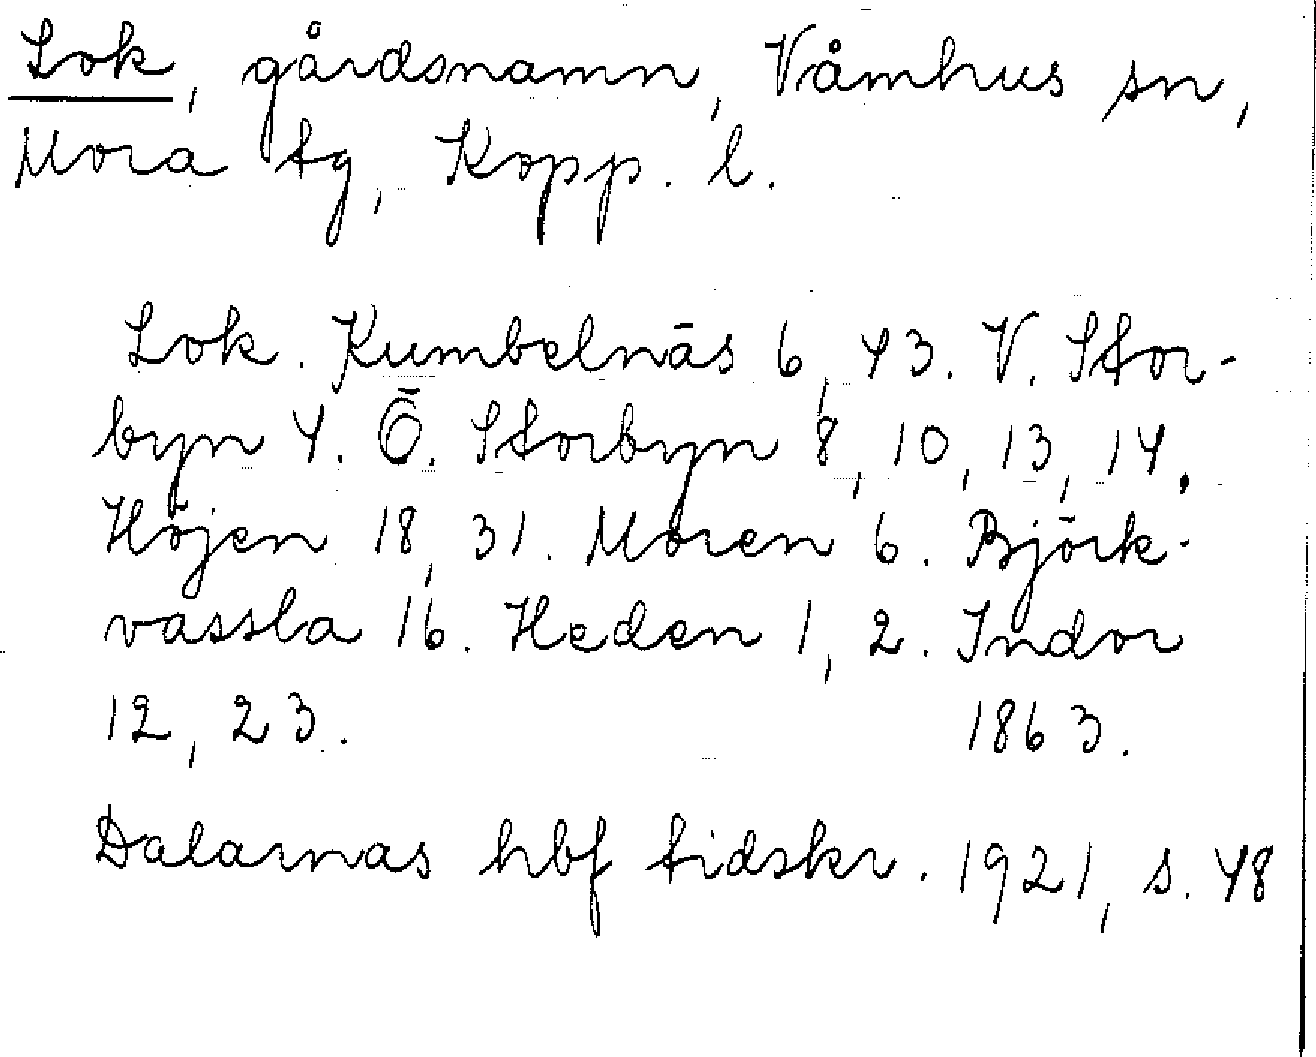 Lok, gårdsnamn, Våmhus sn,
Mora tg, Kopp. l.
Lok. Kumbelnäs 6, 43. V. Stor-
byn 4. Ö. Storbyn 8, 10, 13, 14.
Höjen 18, 31. Moren 6. Björk-
vassla 16. Heden 1, 2. Indor
12, 23. 1863.
Dalarnas hbf tidskr. 1921, s. 48